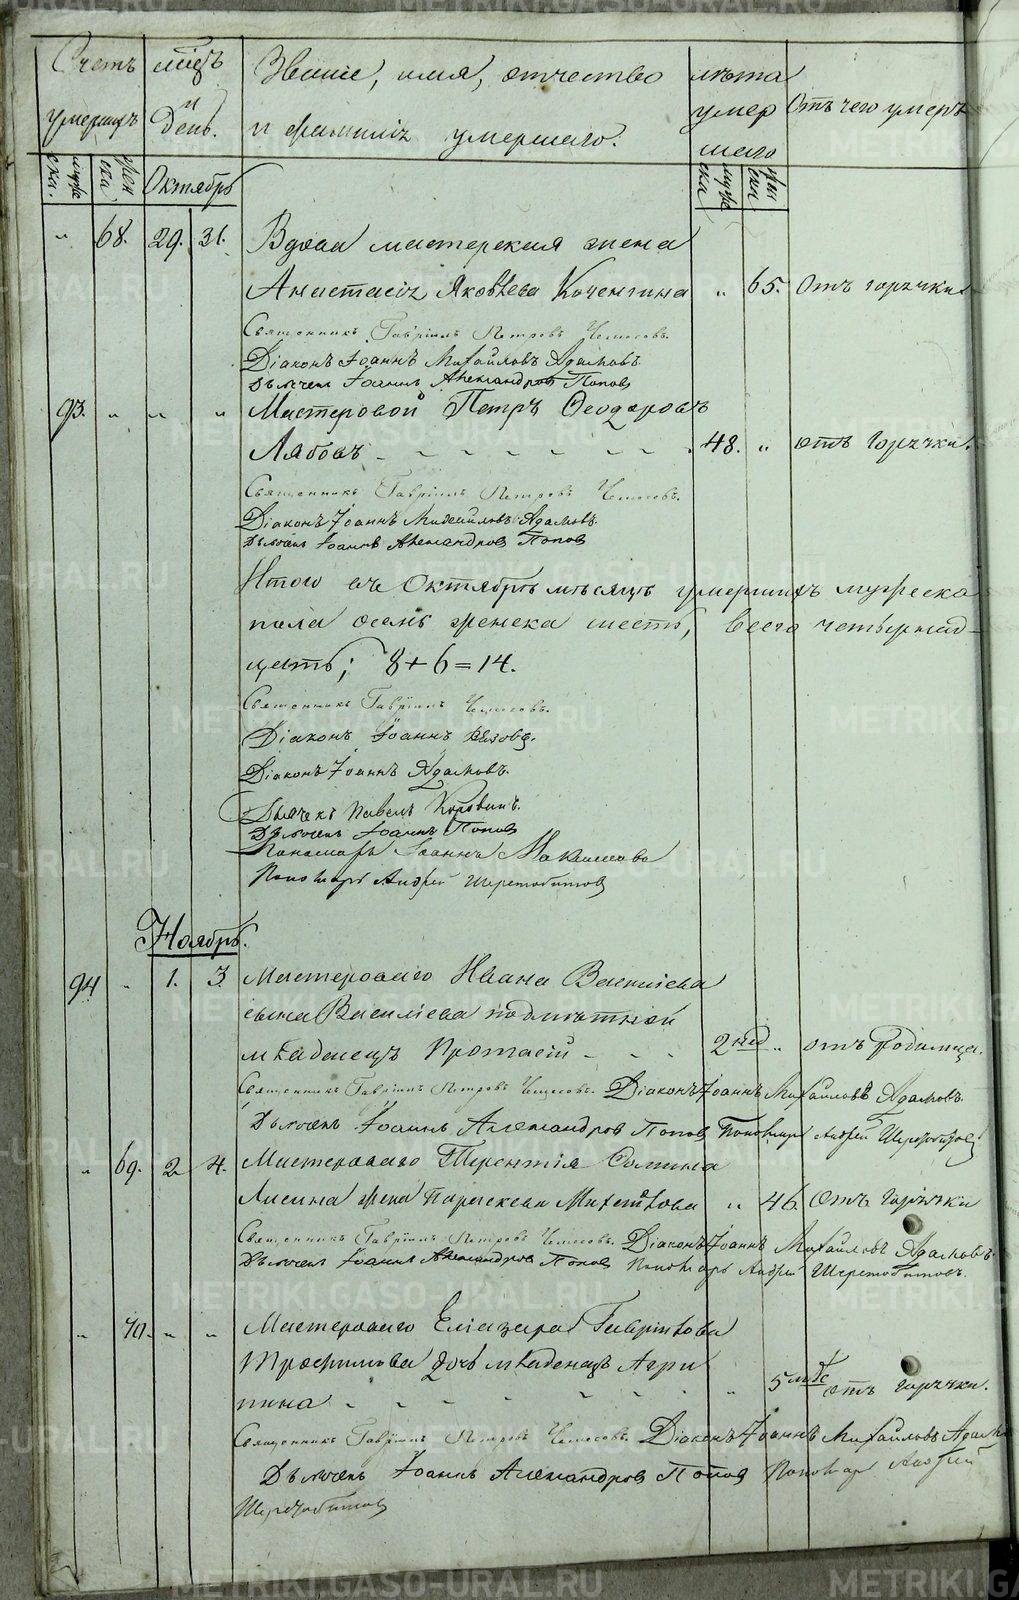 Счетъ умершихъ
мужеска.
женска
мѣсяцъ и день.
Званіе, имя, отчество
и фамилія умершаго.
лѣта умершаго
мужеска
женска
Отъ чего умеръ
Октябрь
" 68. 29. 31. Вдова мастерская жена
Анастасія Яковлева " 65. Отъ горячки
Священникъ Гавріилъ Петровъ
Діаконъ Іоаннъ Михайловъ Адамовъ
Дьячекъ Іоаннъ Александровъ Поповъ
93. " " " Мастеровой Петръ Ѳеодоровъ
Лябовъ 48. " отъ горячки.
Священникъ Гавріилъ Петровъ
Діаконъ Іоаннъ Михайловъ Адамовъ.
Дьячекъ Іоаннъ Александровъ Поповъ
Итого въ Октябрѣ мѣсяцѣ умершихъ мужеска
пола осмь женска шесть, всего четырнад-
цать; 8+6=14.
Священникъ Гавріилъ
Діаконъ Іоаннъ
Діаконъ Іоаннъ Адамовъ.
Дьячекъ Павелъ Коровинъ.
Дьячекъ Іоаннъ Поповъ
Пономарь Іоаннъ
Пономарь Андрей Шеретобитовъ
Ноябрь.
94 " 1. 3. Мастероваго Ивана Василіева
сына Василіева
младенецъ Протасій 2 нед " отъ родимца.
Священникъ Гавріилъ Петровъ Діаконъ Іоаннъ Михайловъ Адамовъ.
Дьячекъ Іоаннъ Александровъ Поповъ Пономарь Андрей Шеретобитовъ
" 69. 2. 4. Мастероваго Терентія
жена Параскева " 46. Отъ горячки
Священникъ Гавріилъ Петровъ Діаконъ Іоаннъ Михайловъ Адамовъ.
Дьячекъ Іоаннъ Александровъ Поповъ Пономарь Андрей Шеретобитовъ.
" 70. " " Мастероваго Еліазара Гаврилова
Трофимова дочь младенецъ Агри
пина " 5 отъ горячки.
Священникъ Гавріилъ Петровъ Діаконъ Іоаннъ Михайловъ
Дьячекъ Іоаннъ Александровъ Поповъ Пономарь Андрей
Шеретобитовъ
METRIKI.GASO-URAL.RU